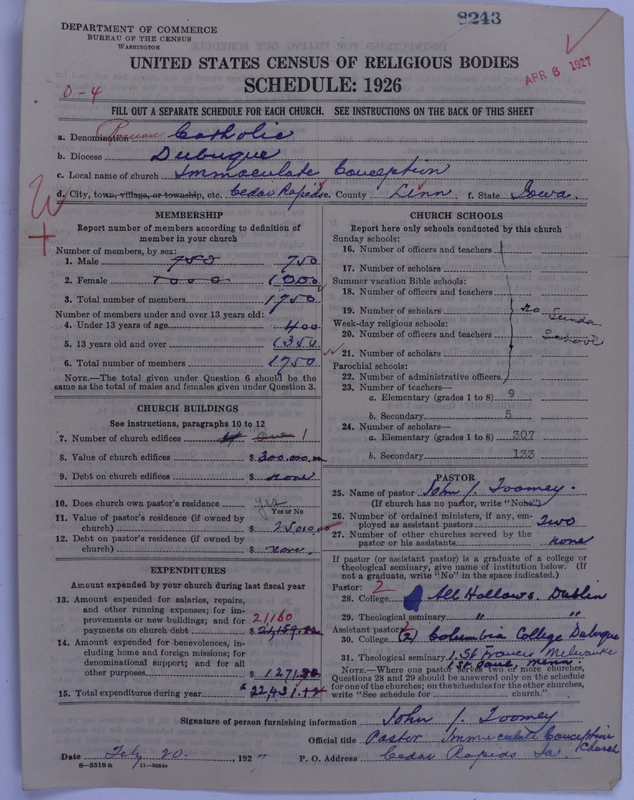 8243
DEPARTMENT OF COMMERCE
BUREAU OF THE CENSUS
WASHINGTON
APR 8 1927
UNITED STATES CENSUS OF RELIGIOUS BODIES
SCHEDULE: 1926
0-4
FILL OUT A SEPARATE SCHEDULE FOR EACH CHURCH. SEE INSTRUCTIONS ON THE BACK OF THIS SHEET
a. Denomination Roman Catholic
b. Diocese Dubuque
c. Local name of church Immaculate Conception
d. City, town, village, or township, etc. Cedar Rapids e. County Linn f. State Iowa.
MEMBERSHIP
Report number of members according to definition of
member in your church
Number of members, by sex:
1. Male 750 750
2. Female 1000 1000
3. Total number of members 1750
Number of members under and over 13 years old:
4. Under 13 years of age 400
5. 13 years old and over 1350
6. Total number of members 1750
NOTE.—The total given under Question 6 should be
same as the total of males and females given under Question 3.
CHURCH BUILDINGS
See instructions, paragraphs 10 to 12
7. Number of church edifices one 1
8. Value of church edifices $ 300,000.00
9. Debt on church edifices $ none
10. Does church own pastor's residence yes
Yes or No
11. Value of pastor's residence (if owned by
church) $ 25000.00
12. Debt on pastor's residence (if owned by
church) $ none.
EXPENDITURES
Amount expended by your church during last fiscal year
13. Amount expended for salaries, repairs,
and other running expenses; for im-
provements or new buildings; and for
payments on church debt $ 21160
14. Amount expended for benevolences,
including home and foreign missions; for
denominational support; and for all
other purposes $ 1271
15. Total expenditures during year $ 22,431
CHURCH SCHOOLS
Report here only schools conducted by this church
Sunday schools:
16. Number of officers and teachers
17. Number of scholars
Summer vacation Bible schools:
18. Number of officers and teachers
19. Number of scholars no Sunda
Week-day religious schools:
20. Number of officers and teachers School
21. Number of scholars
Parochial schools:
22. Number of administrative officers
23. Number of teachers—
a. Elementary (grades 1 to 8) 9
b. Secondary 5
24. Number of scholars—
a. Elementary (grades 1 to 8) 307
b. Secondary 133
PASTOR
25. Name of pastor John J. Toomey.
(If church has no pastor, write "None")
26. Number of ordained ministers, if any, em-
ployed as assistant pastors Two
27. Number of other churches served by the
pastor or his assistants none
If pastor (or assistant pastor) is a graduate of a college or
theological seminary, give name of institution below. (If
not a graduate, write "No" in the space indicated.)
Pastor: 2
28. College All Hallows. Dublin
29. Theological seminary " "
Assistant pastor:
30. College (2) Columbia College Dubuque
31. Theological seminary 1. St. Francis Milwaukee
1 St. Paul, Minn.
NOTE.—Where one pastor serves two or more churches,
Questions 28 and 29 should be answered only on the schedule
for one of the churches; on the schedules for the other churches,
write "See schedule for church."
Signature of person furnishing information John J. Toomey
Official title Pastor Immaculate Conception
Church
Date Feby 20, 192 7 P. O. Address Cedar Rapids Ia.
8—5518a